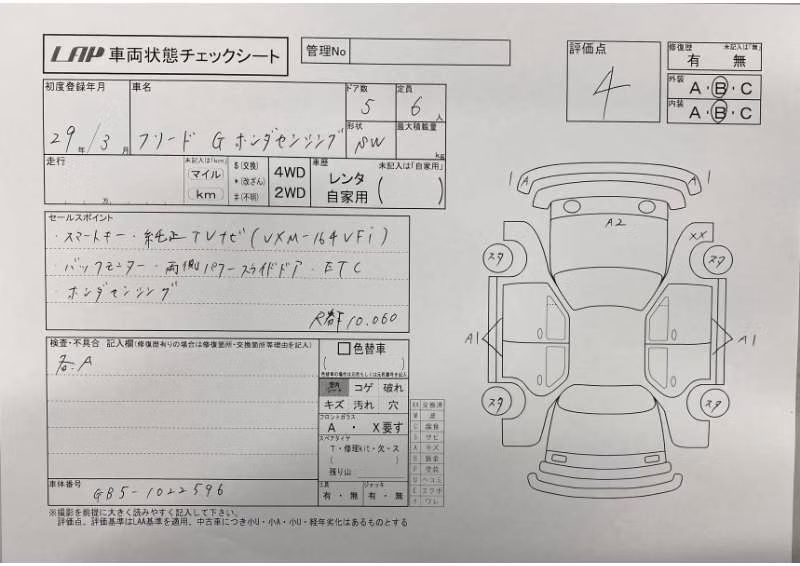 LAP 車両状態チェックシート
管理No
評価点
4
修復歴 未記入は「無」
有 無
外装 A・B・C
内装 A・B・C
初度登録年月
29年/3月
車名
フリード G ホンダセンシング
ドア数
5
定員
6人
形状
SW
最大積載量
kg
走行
万
未記入は「km」
マイル
km
$(交換)
*(改ざん)
#(不明)
4WD
2WD
車歴 未記入は「自家用」
レンタ
自家用
セールスポイント
・スマートキー・純正TVナビ(VXM-164VFi)
・バックモニター・両側パワースライドドア・ETC
・ホンダセンシング
10.060
検査・不具合 記入欄(修復歴有りの場合は修復箇所・交換箇所等理由を記入)
A
色替車
熱 コゲ 破れ
キズ 汚れ 穴
フロントガラス
A・X要す
スペアタイヤ
T・修理kit・欠・ス
残り山
工具
有・無
ジャッキ
有・無
XX 交換済
車体番号
GB5-1022596
※撮影を前提に大きく読みやすく記入して下さい。
評価点、評価基準はLAA基準を適用、中古車につき小U・小A・小U・経年劣化はあるものとする
A
A
A2
XX
スタ
スタ
A1
A1
スタ
スタ